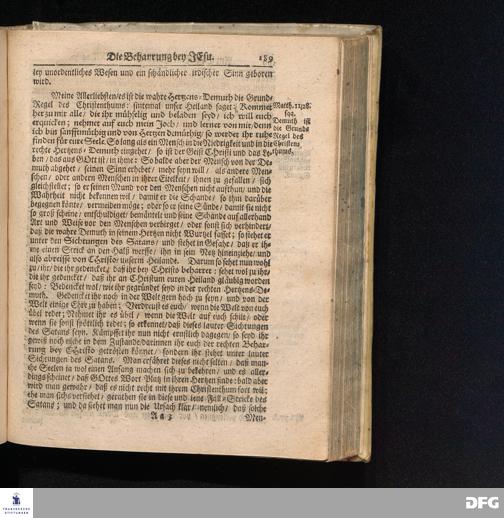 Die Beharrung bey JEsu. 189
ley unordentliches Wesen und ein schändlicher irdischer Sinn geboren
wird.
Meine Allerliebsten/es ist die wahre Hertzens-Demuth die Grund-
Regel des Christenthums: sintemal unser Heiland saget: Kommet
her zu mir alle/ die ihr mühselig und beladen seyd/ ich will euch
erquicken; nehmet auf euch mein Joch/ und lernet von mir/denn
ich bin sanfftmüthig und von Hertzen demüthig; so werdet ihr ruhe
finden für eure Seele. So lang als ein Mensch in die Niedrigkeit und in die
rechte Hertzens-Demuth eingehet/ so ist der Geist Christi und das Le-
ben/ das aus GOtt ist/ in ihme: So balde aber der Mensch von der De-
muth abgehet/ seinen Sinn erhebet/ mehr seyn will/ als andere Men-
schen/ oder andern Menschen in ihrer Eitelkeit/ ihnen zu gefallen/ sich
gleichstellet; so er seinen Mund vor den Menschen nicht aufthun/ und die
Wahrheit nicht bekennen wil/ damit er die Schande/ so ihm darüber
begegnen könte/ vermeiden möge; oder so er seine Sünde/ damit sie nicht
so groß scheine/ entschuldiget/ bemäntelt und seine Schande auf allerhand
Art und Weise vor den Menschen verbirget/ oder sonst sich verhindert/
daß die wahre Demuth in seinem Hertzen nicht Wurtzel fasset; so stehet er
unter den Sichtungen des Satans/ und stehet in Gefahr/ daß er ih-
me einen Strick an den Halß werffe/ ihn in sein Netz hineinziehe/ und
also abreisse von CHristo unserm Heilande. Darum so sehet nun wohl
zu/ihr/ die ihr gedencket/ daß ihr bey Christo beharret: sehet wol zu/ihr/
die ihr gedencket/ daß ihr an Christum euren Heiland gläubig worden
seyd: Bedencket wol/ wie ihr gegründet seyd in der rechten Hertzens-De-
muth. Gedencket ihr noch in der Welt gern hoch zu seyn/ und von der
Welt einige Ehr zu haben: Verdreust es euch/ wenn die Welt von euch
übel redet; Nehmet ihr es übel/ wenn die Welt auf euch schilt/ oder
wenn sie sonst spöttlich redet; so erkennet/ daß dieses lauter Sichtungen
des Satans seyn. Kämpffet ihr nun nicht ernstlich dagegen/ so seyd ihr
gewiß noch nicht in dem Zustande/darinnen ihr euch der rechten Behar-
rung bey CHristo getrösten könnet/ sondern ihr stehet unter lauter
Sichtungen des Satans. Man erfähret dieses nicht selten/ daß man-
che Seelen ja wol einen Anfang machen sich zu bekehren/ und es aller-
dings scheinet/ daß GOttes Wort Platz in ihren Hertzen finde: bald aber
wird man gewahr/ daß es nicht recht mit ihrem Christenthum fort wil;
ehe man sichs versiehet/ gerathen sie in diese und jene Fall-Stricke des
Satans; und da siehet man nun die Ursach klar/ nemlich/ daß solche
A a 3 Men-
Matth. 11,28.
sqq.
Demuth ist
die Grund-
Regel des
Christen-
thums.
FRANCKESCHE
STIFTUNGEN
DFG